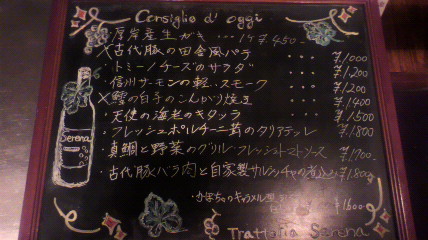 Consiglio d' oggi
厚岸産生ガキ ・・・ 1ケ ¥450-
×古代豚の田舎風パテ ・・・ ¥1,000
・トミーノチーズのサラダ ・・・ ¥1,200
・信州サーモンの軽いスモーク ¥1,200
×鱈の白子のこんがり焼き ・・・ ¥1400
・天使の海老のキタッラ ・・・ ¥1500
・フレッシュポルチーニ茸のタリアテッレ ¥1800
・真鯛と野菜のグリル・フレッシュトマトソース ¥1700-
・古代豚バラ肉と自家製サルシッチャの煮込み ¥1800
かぼちゃのキャラメル
¥600-
Trattoria Serena
Serena